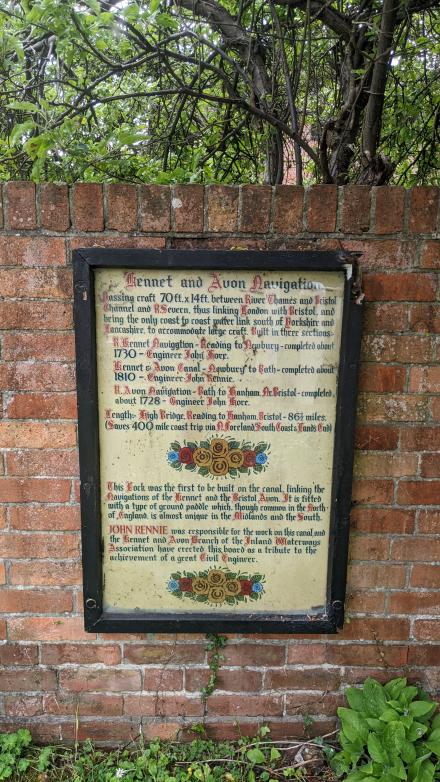 Kennet and Avon Navigation
Passing craft 70ft. x 14ft. between River Thames and Bristol
Channel and R. Severn, thus linking London with Bristol, and
being the only coast to coast water link south of Yorkshire and
Lancashire, to accommodate large craft. Built in three sections:-
R. Kennet Navigation - Reading to Newbury - completed about
1730 - Engineer John Hore.
Kennet & Avon Canal - Newbury to Bath - completed about
1810 - Engineer John Rennie.
R. Avon Navigation - Bath to Hanham Nr. Bristol - completed
about 1728 - Engineer John Hore.
Length:- High Bridge, Reading to Hanham, Bristol - 86½ miles.
(Saves 400 mile coast trip via N. Foreland, South Coast & Lands End)
This Lock was the first to be built on the canal, linking the
Navigations of the Kennet and the Bristol Avon. It is fitted
with a type of ground paddle which, though common in the North
of England, is almost unique in the Midlands and the South.
JOHN RENNIE was responsible for the work on this canal, and
the Kennet and Avon Branch of the Inland Waterways
Association have erected this board as a tribute to the
achievement of a great Civil Engineer.